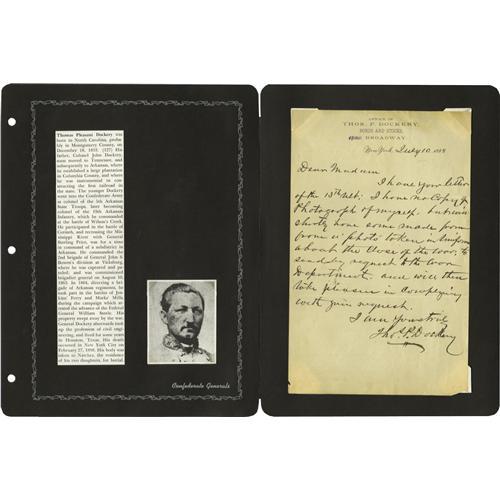 Thomas Pleasant Dockery was
born in North Carolina, probably
in Montgomery County, on
December 18, 1833. (127) His
father, Colonel John Dockery,
soon moved to Tennessee, and
subsequently to Arkansas, where
he established a large plantation
in Columbia County, and where
he was instrumental in constructing
the first railroad in
the state. The younger Dockery
went into the Confederate Army
as colonel of the 5th Arkansas
State Troops, later becoming
colonel of the 19th Arkansas
Infantry, which he commanded
at the battle of Wilson's Creek.
He participated in the battle of
Corinth, and recrossing the Mississippi
River with General
Sterling Price, was for a time
in command of a subdistrict in
Arkansas. He commanded the
2nd brigade of General John S.
Bowen's division at Vicksburg,
where he was captured and paroled,
and was commissioned
brigadier general on August 10,
1863. In 1864, directing a brigade
of Arkansas regiments, he
took part in the battles of Jenkins'
Ferry and Marks' Mills,
during the campaign which arrested
the advance of the Federal
General William Steele. His
property swept away by the war,
General Dockery afterwards took
up the profession of civil engineering,
and lived for some years
in Houston, Texas. His death
occurred in New York City on
February 27, 1898. His body was
taken to Natchez, the residence
of his two daughters, for burial.
Confederate Generals
OFFICE OF
THOS. P. DOCKERY,
BONDS AND STOCKS,
BROADWAY.
New York, July 10
Dear Madam
I have your letter
of the 13th ult; I have no Copy or
Photograph of myself. but
shortly have some made from
from a photo taken in Uniform
about the close of the war, to
send by request to the War
Department. and will then
take pleasure in complying
with your request.
I am Yours truly
Thos. P. Dockery